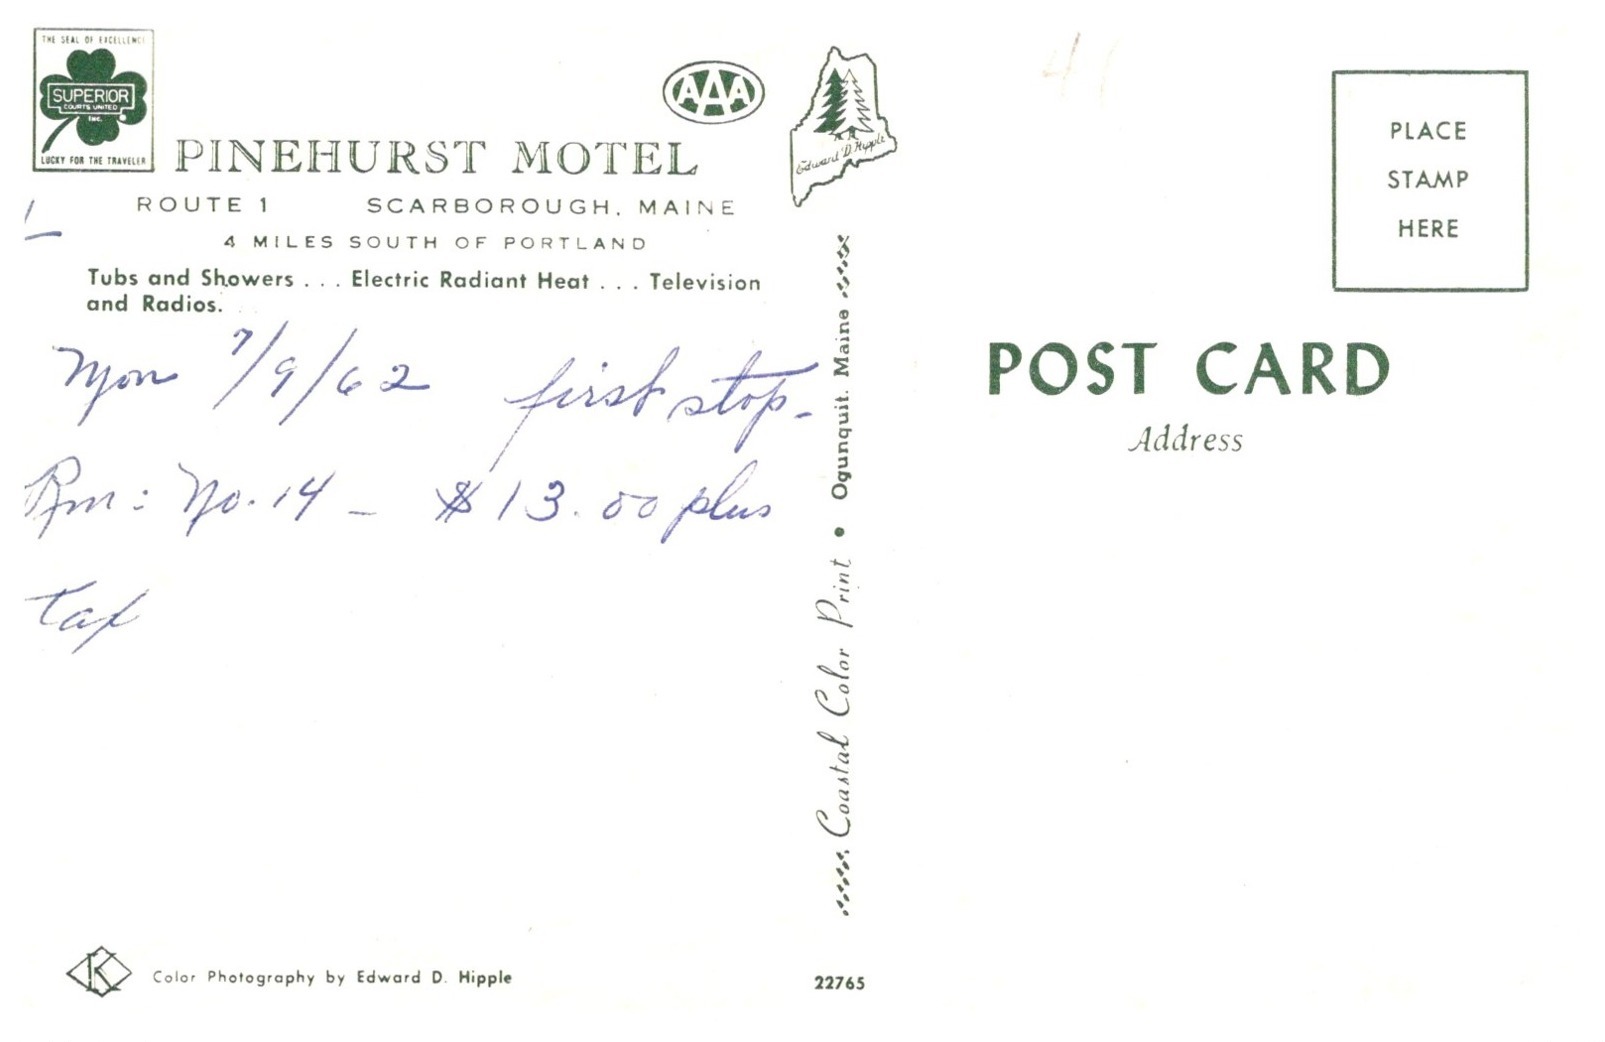 THE SEAL OF EXCELLENCE
SUPERIOR
COURTS UNITED
Inc.
LUCKY FOR THE TRAVELER
AAA
Edward D. Hipple
PINEHURST MOTEL
ROUTE 1 SCARBOROUGH, MAINE
4 MILES SOUTH OF PORTLAND
Tubs and Showers . . . Electric Radiant Heat . . . Television
and Radios.
Mon 7/9/62 first stop-
Rm: No. 14 - $13.00 plus
tax
K
Color Photography by Edward D. Hipple
Coastal Color Print • Ogunquit, Maine
22765
41
PLACE
STAMP
HERE
POST CARD
Address